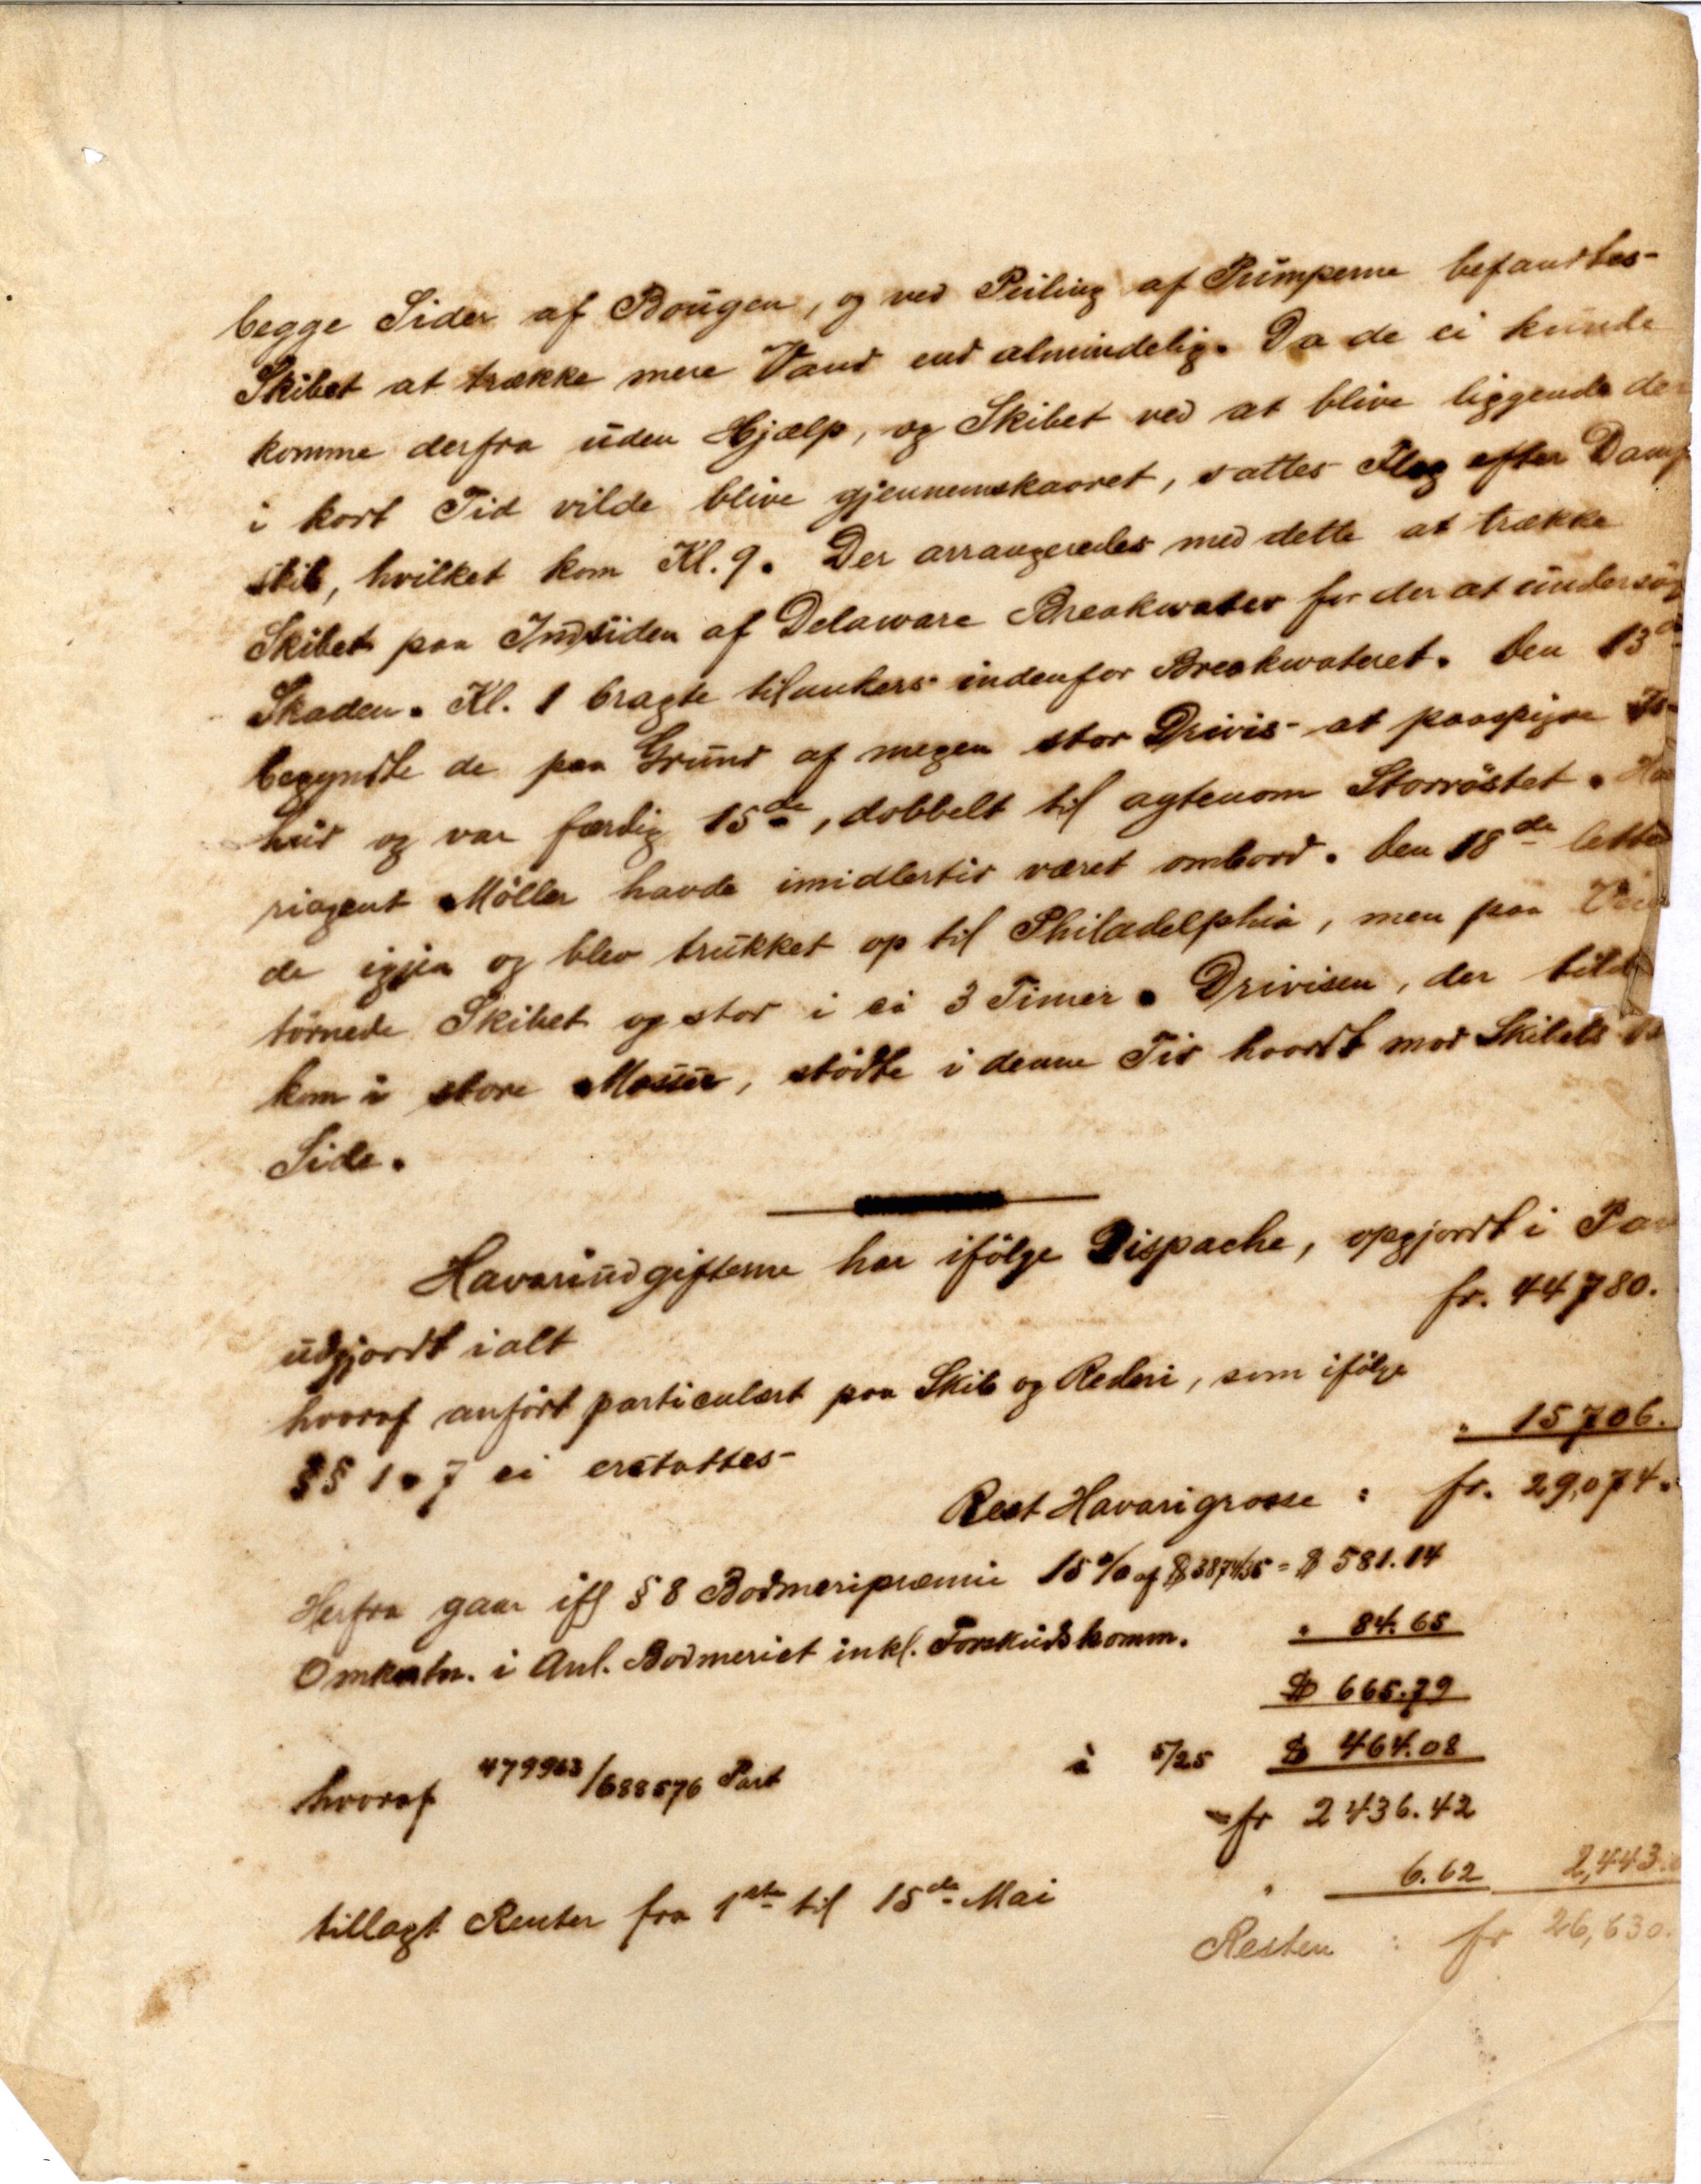 begge Sider af Bougen, og ved Peiling af Pumperne befandtes
Skibet at trække mere Vand end almindelig. Da de ei kunde
komme derfra uden Hjælp, og Skibet ved at blive liggende der
i kort Tid vilde blive gjennemskaaret, sattes Flag efter Damp
skib, hvilket kom Kl. 9. Der arrangeredes med dette at trække
Skibet paa Indsiden af Delaware Breakwater for der at undersøg
Skaden. Kl. 1 bragte tilankers indenfor Breakwateret. Den 13de
begyndte de paa Grund af megen stor Drivis at paaspigre Is-
hud og var færdig 15de, dobbelt til agtenom Storröstet. Ha
riagent Möller havde imidlertid været ombord. Den 18de letted
de igjen og blev trukket op til Philadelphia, men paa Vei
törnede Skibet og stod i ei 3 Timer. Drivisen, der tild
kom i store Masser, stödte i denne Tid haardt mod Skibets
Side.
Havariudgifterne har ifölge Dispache, opgjordt i Pa
udgjordt ialt fr. 44780.
hvoraf anfört particulært paa Skib og Rederi, som ifölge
§§ 1 & 7 ei erstattes " 15706.
Rest Havarigrosse : fr. 29,074.
Herfra gaar ifl § 8 Bodmeripræmie 15 % af $ 3874/35 = $ 581.14
Omkostn. i Anl. Bodmeriet inkl. Forskudskomm. " 84.65
$ 665.79
hvoraf 479963/688576 Part à 5/25 $ 464.08
= fr 2436.42
tillagt Renter fra 1ste til 15de Mai " 6.62 2,443.
Resten : fr 26,630.